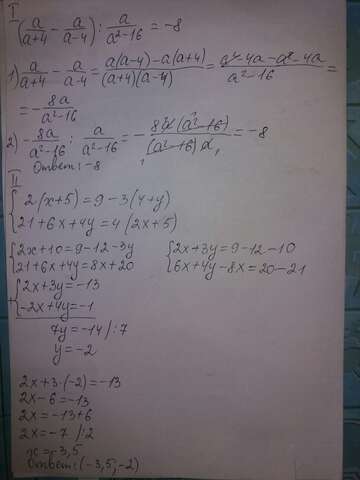 I
(a/(a+4) − a/(a−4)) : a/(a²−16) = −8
1) a/(a+4) − a/(a−4) = (a(a−4)−a(a+4))/((a+4)(a−4)) = (a²−4a−a²−4a)/(a²−16) =
= −8a/(a²−16)
2) −8a/(a²−16) : a/(a²−16) = −(8a(a²−16))/((a²−16)a) = −8
Ответ: −8
II
{2(x+5)=9−3(4+y)
21+6x+4y=4(2x+5)
{2x+10=9−12−3y
21+6x+4y=8x+20
{2x+3y=9−12−10
6x+4y−8x=20−21
+{2x+3y=−13
−2x+4y=−1
7y=−14 |:7
y=−2
2x+3·(−2)=−13
2x−6=−13
2x=−13+6
2x=−7 |:2
x=−3,5
Ответ: (−3,5;−2)